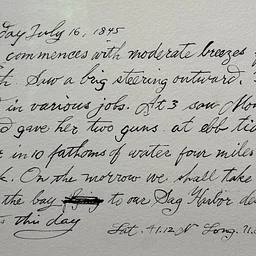 day July 16, 1845
commences with moderate breezes
th. Saw a brig steering outward.
in various jobs. At 3 saw Mon
d gave her two guns at ebb tid
in 10 fathoms of water four miles
k. On the morrow we shall take
the bay to our Sag Harbor de
s this day
Lat. 41.12 N Long. 71.